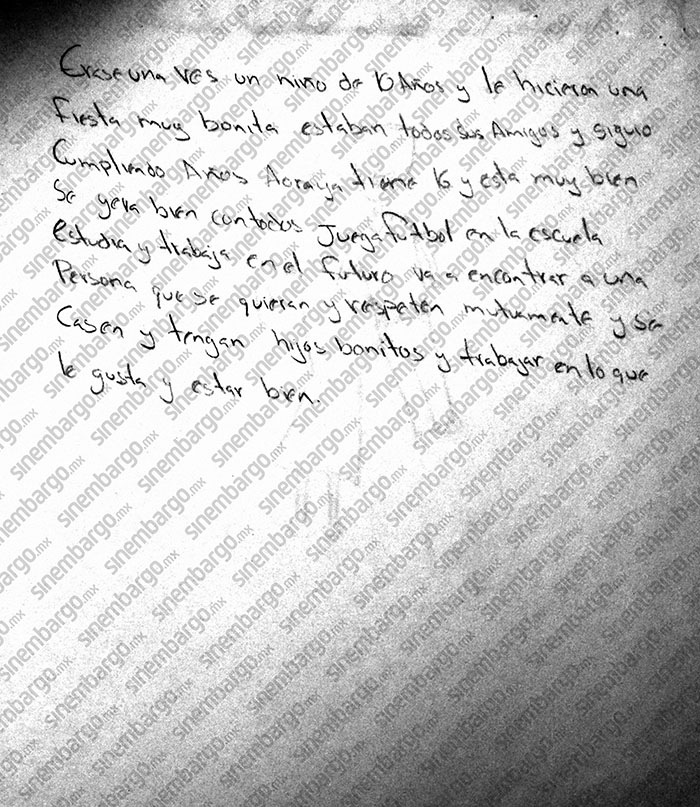 Erase una ves un niño de 10 Años y le hicieron una
fiesta muy bonita estaban todos sus Amigos y siguio
Cumpliendo Años Aoraya tiene 16 y esta muy bien
Se yeva bien contodos Juega futbol en la escuela
estudia y trabaja en el futuro va a encontrar a una
Persona que se quieran y respeten mutuamente y se
Casen y tengan hijos bonitos y trabajar en lo que
le gusta y estar bien.
sinembargo.mx